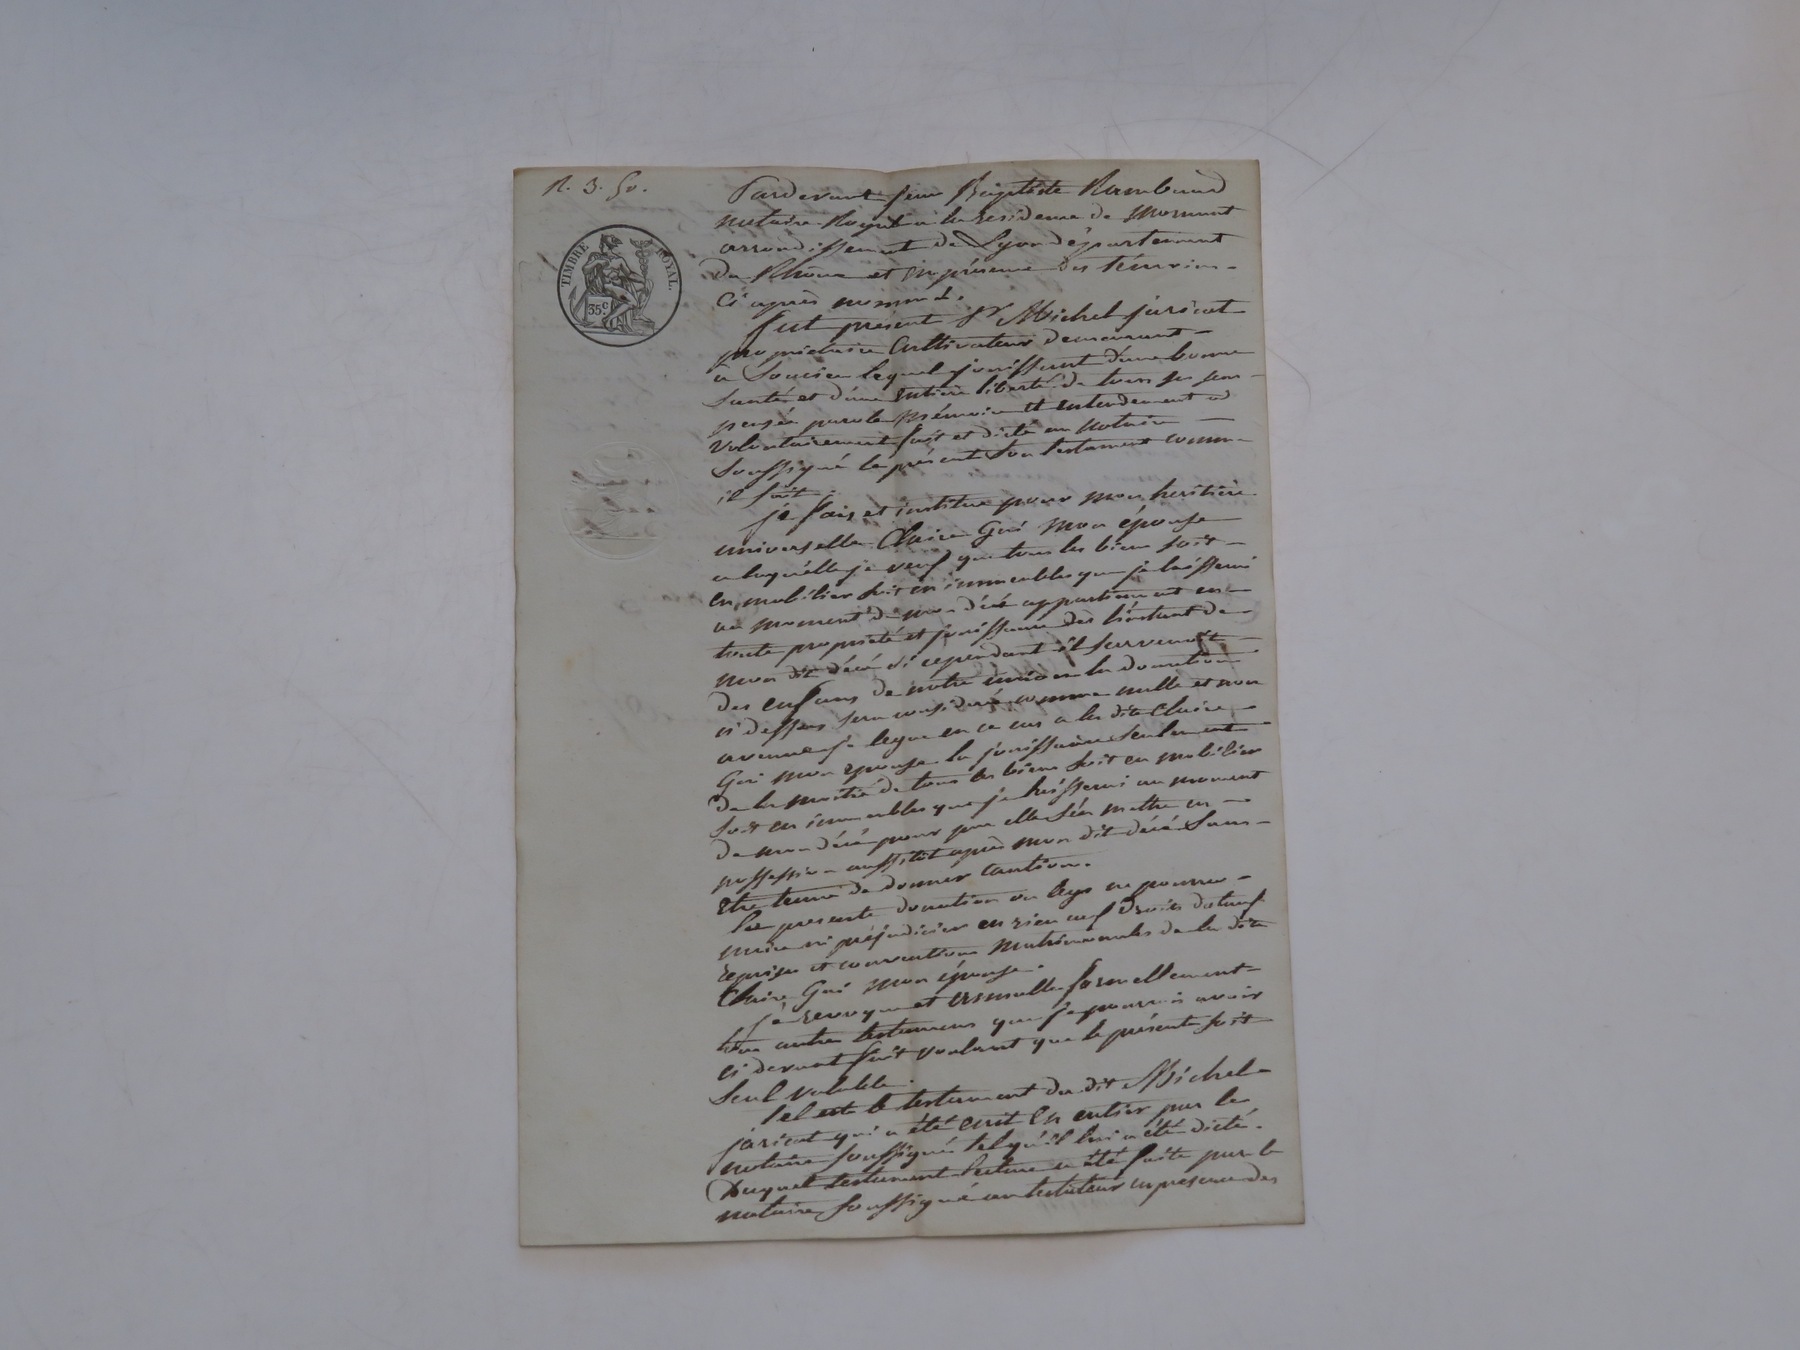 R. 3. 50.
TIMBRE ROYAL.
35c.
Pardevant Jean Baptiste Rambaud
notaire Royal a la residence de Mornant
arrondissement de Lyon département
du Rhône et en présence des témoins
ci après nommé.
fut présent Sr Michel jaricot
propriétaire Cultivateur demeurant
a Soucieu lequel jouissant d'une bonne
santé et d'une entière liberté de tous ses sens
pensée parole mémoire et entendement a
volontairement fait et dicté au notaire
soussigné le présent son testament comme
il suit.
je fais et institue pour mon heritière
universelle Claire Gui mon épouse
a laquelle je veux que tous les bien soit
en mobilier soit en immeubles que je laisserai
au moment de mon décé appartiennent en
toute propriété et jouissance dès l'instant de
mon dit décé si cependant il survenoit
des enfans de notre union la donation
ci dessus sera considérée comme nulle et non
avenue je legue en ce cas a la dite Claire
Gui mon épouse la jouissance seulement
de la moitié de tous les biens soit en mobilier
soit en immeubles que je laisserai au moment
de mon décé pour par elle s'en mettre en
possession aussitôt après mon dit décé sans
etre tenue de donner caution.
La presente donation ou legs ne pourra
nuire ni préjudicier en rien aux droits dotaux
reprises et conventions matrimoniales de la dite
Claire Gui mon épouse.
je revoque et annulle formellement
tous autres testamens que je pourrois avoir
ci devant fait voulant que le présent soit
seul valable.
tel est le testament du dit Michel
jaricot qui a été ecrit en entier par le
notaire soussigné tel qu'il lui a été dicté.
Duquel testament lecture a été faite par le
notaire soussigné au testateur en presence des